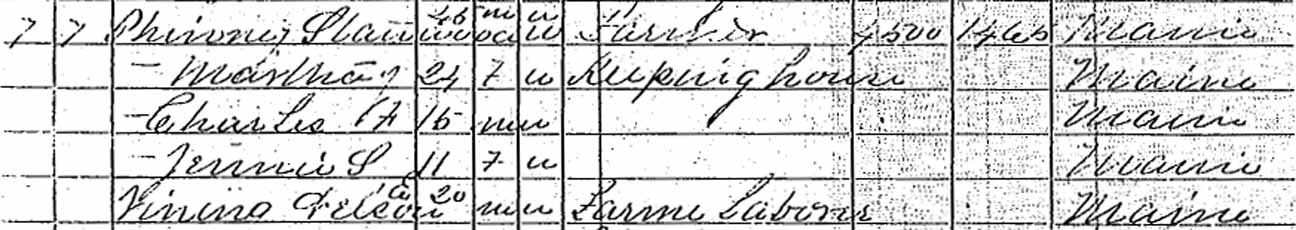 7 7 Phinney 46 m w Farmer 4500 1465 Maine
— Martha 24 F w Keeping house Maine
— Charles 15 m w Maine
— Jennie S 11 F w Maine
Vining 20 m w Farm Labore Maine